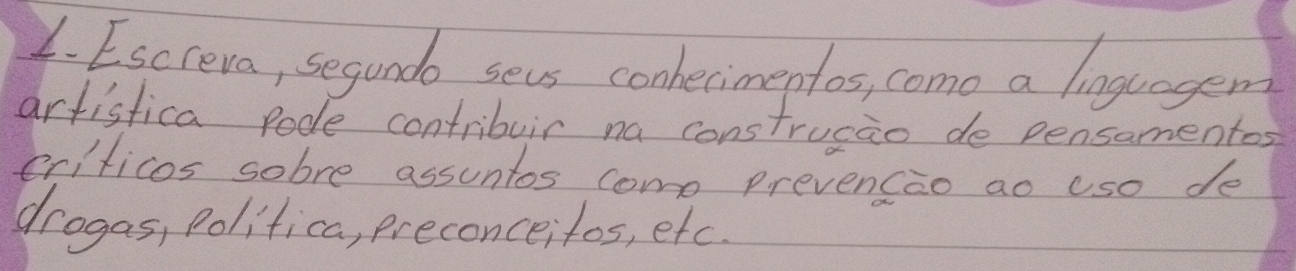 1- Escreva, segundo seus conhecimentos, como a linguagem
artística pode contribuir na construção de pensamentos
críticos sobre assuntos como prevenção ao uso de
drogas, política, preconceitos, etc.